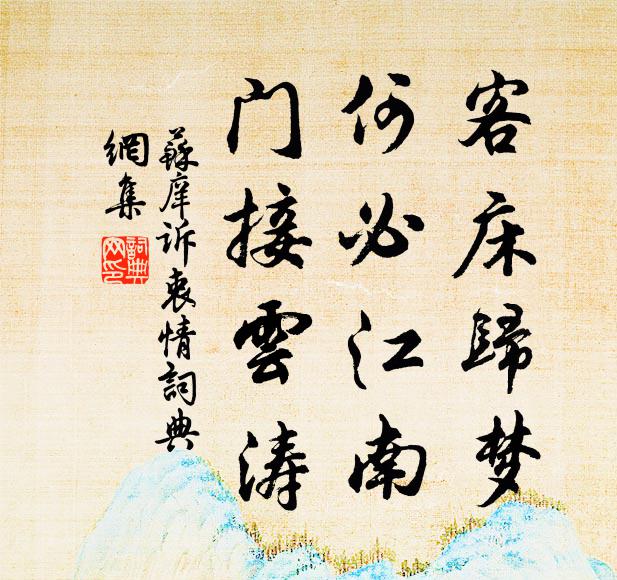 客床歸梦
何必江南
门接雲涛
蘇庠诉衷情詞典
網集
詞典
网印